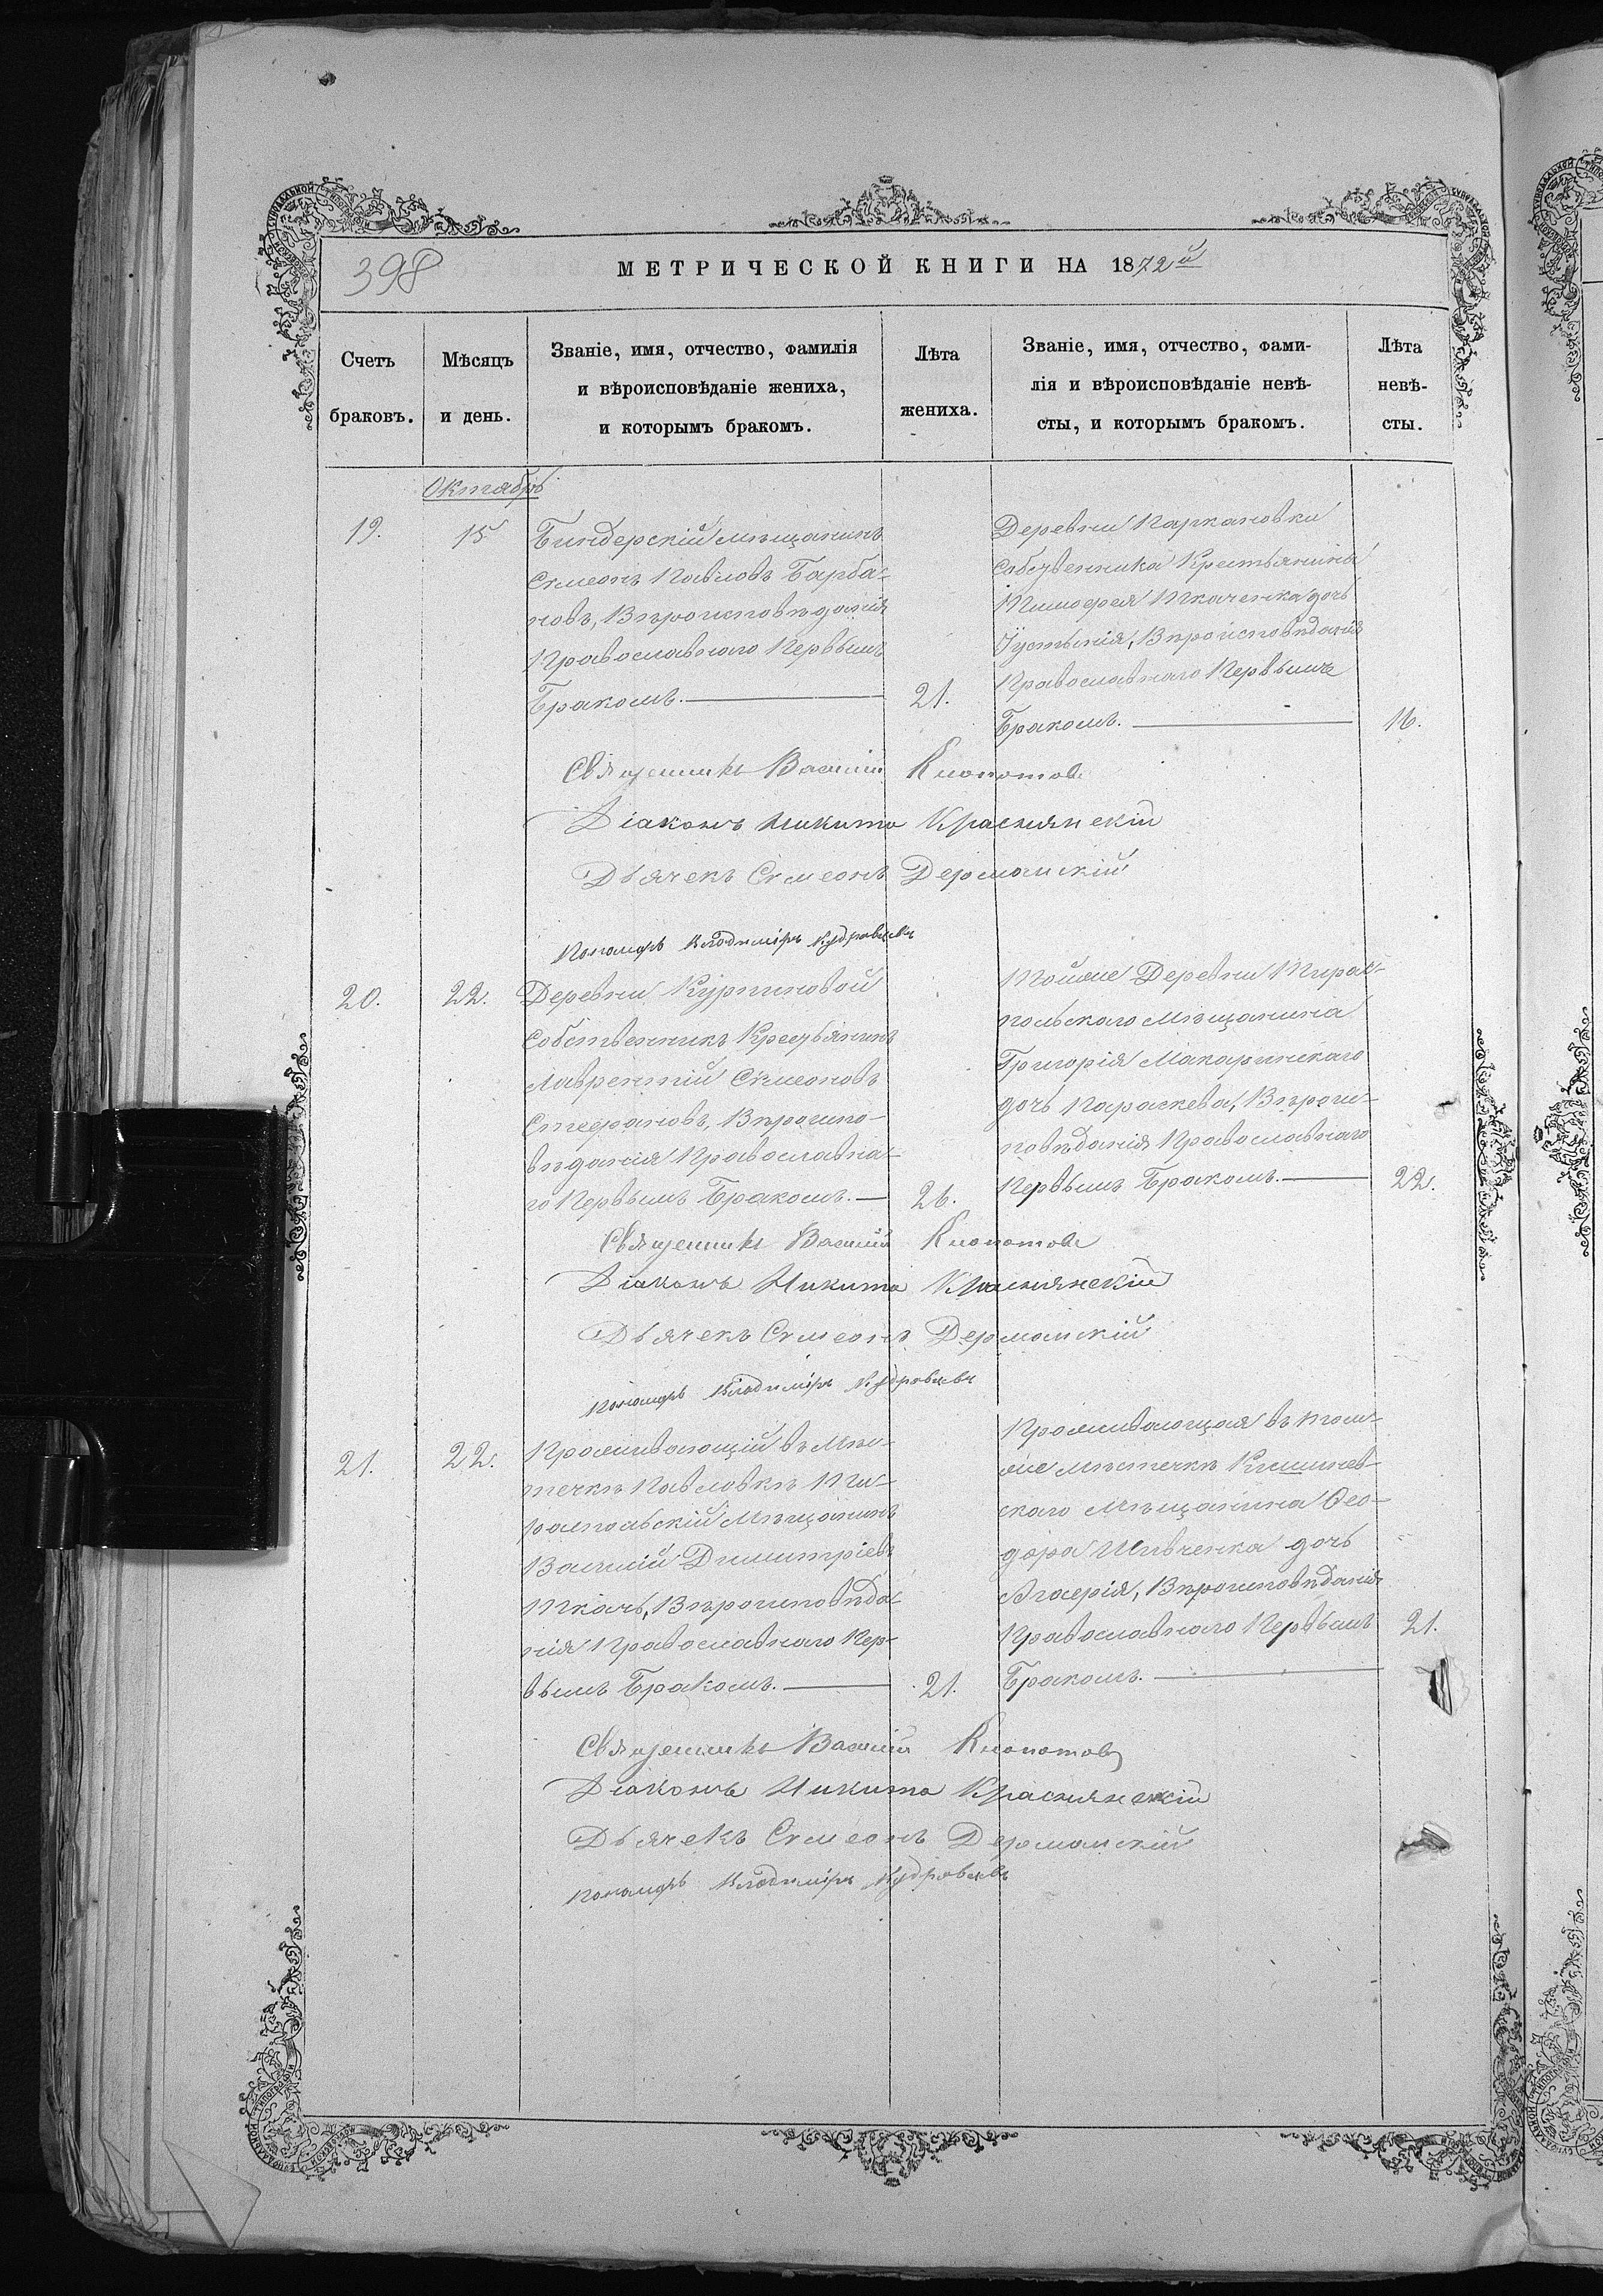 398
МЕТРИЧЕСКОЙ КНИГИ НА 1872й
Счетъ браковъ.
Мѣсяцъ и день.
Званіе, имя, отчество, фамилія
и вѣроисповѣданіе жениха,
и которымъ бракомъ.
Лѣта жениха.
Званіе, имя, отчество, фами-
лія и вѣроисповѣданіе невѣ-
сты, и которымъ бракомъ.
Лѣта невѣ-
сты.
Октябрь
19.
15
Бендерскій мѣщанинъ
Симеонъ Павловъ Барба-
новъ, Вѣроисповѣданія
Православнаго Первымъ
Бракомъ.
21.
Деревни Паркановки
Крестьянина
Тимофея Ткаченка дочь
Іустинія, Вѣроисповѣданія
Православнаго Первымъ
Бракомъ.
16.
Священникъ Василій Клопотовъ
Діаконъ Никита Краснянскій
Дьячекъ Симеонъ Дерманскій
Пономарь Владиміръ Кудрявцевъ
20.
22.
Деревни Курпиновой
Собственникъ Крестьянинъ
Лаврентій Симеоновъ
Стефановъ, Вѣроиспо-
вѣданія Православна-
го Первымъ Бракомъ.
26.
Тойже Деревни Тирас-
польскаго мѣщанина
Григорія Макаринскаго
дочь Параскева, Вѣроис-
повѣданія Православнаго
Первымъ Бракомъ.
22.
Священникъ Василій Клопотовъ
Діаконъ Никита Краснянскій
Дьячекъ Симеонъ Дерманскій
Пономарь Владиміръ Кудрявцевъ
21.
22.
Проживающій въ Мѣс-
течкѣ Павловкѣ Ти-
распольскій Мѣщанинъ
Василій Димитріевъ
Ткачь, Вѣроисповѣда-
нія Православнаго Пер-
вымъ Бракомъ.
21.
Проживающая въ том-
же мѣстечкѣ Кишинев-
скаго Мѣщанина Ѳео-
дора Шевченка дочь
Агафія, Вѣроисповѣданія
Православнаго Первымъ
Бракомъ.
21.
Священникъ Василій Клопотовъ
Діаконъ Никита Краснянскій
Дьячекъ Симеонъ Дерманскій
Пономарь Владиміръ Кудрявцевъ